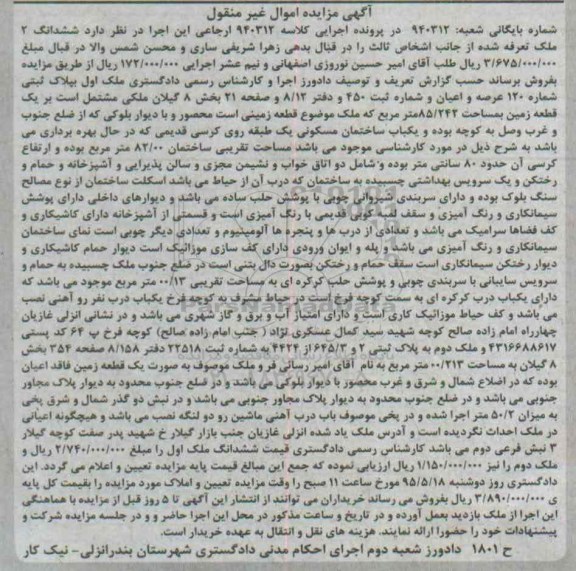 آگهی مزایده اموال غیر منقول
شماره بایگانی شعبه: ۹۴۰۳۱۲ در پرونده اجرایی کلاسه ۹۴۰۳۱۲ ارجاعی این اجرا در نظر دارد ششدانگ ۲
ملک تعرفه شده از جانب اشخاص ثالث را در قبال بدهی زهرا شریفی ساری و محسن شمس والا در قبال مبلغ
۳/۶۷۵/۰۰۰/۰۰۰ ریال طلب آقای امیر حسین نوروزی اصفهانی و نیم عشر اجرایی ۱۷۲/۰۰۰/۰۰۰ ریال از طریق مزایده
بفروش برساند حسب گزارش تعریف و توصیف دادورز اجرا و کارشناس رسمی دادگستری ملک اول بپلاک ثبتی
شماره ۱۲۰ عرصه و اعیان و شماره ثبت ۴۵۰ و دفتر ۸/۱۲ و صفحه ۲۱ بخش ۸ گیلان ملکی مشتمل است بر یک
قطعه زمین بمساحت ۸۵/۲۴۲متر مربع که ملک موضوع قطعه زمینی است محصور و با دیوار بلوکی که از ضلع جنوب
و غرب وصل به کوچه بوده و یکباب ساختمان مسکونی یک طبقه روی کرسی قدیمی که در حال بهره برداری می
باشد به شرح ذیل در مورد کارشناسی موجود می باشد مساحت تقریبی ساختمان ۸۲/۰۰ متر مربع بوده و ارتفاع
کرسی آن حدود ۸۰ سانتی متر بوده و شامل دو اتاق خواب و نشیمن مجزی و سالن پذیرایی و آشپزخانه و حمام و
رختکن و یک سرویس بهداشتی چسبیده به ساختمان که درب آن از حیاط می باشد اسکلت ساختمان از نوع مصالح
سنگ بلوک بوده و دارای سربندی شیروانی چوبی با پوشش حلب ساده می باشد و دیوارهای داخلی دارای پوشش
سیمانکاری و رنگ آمیزی و سقف لمبه کوبی قدیمی با رنگ آمیزی است و قسمتی از آشپزخانه دارای کاشیکاری و
کف فضاها سرامیک می باشد و تعدادی از درب ها و پنجره ها آلومینیوم و تعدادی دیگر چوبی است نمای ساختمان
سیمانکاری و رنگ آمیزی می باشد و پله و ایوان ورودی دارای کف سازی موزائیک است دیوار حمام کاشیکاری و
دیوار رختکن سیمانکاری است سقف حمام و رختکن بصورت دال بتنی است در ضلع جنوب ملک چسبیده به حمام و
سرویس سایبانی با سربندی چوبی و پوشش حلب کرکره ای به مساحت تقریبی ۰۰/۱۳ متر مربع موجود می باشد که
دارای یکباب درب کرکره ای به سمت کوچه فرخ است در حیاط مشرف به کوچه فرخ یکباب درب نفر رو آهنی نصب
می باشد و کف حیاط موزائیک کاری است و دارای امتیاز آب و برق و گاز شهری می باشد و در نشانی انزلی غازیان
چهارراه امام زاده صالح کوچه شهید سید کمال عسکری نژاد ( جنب امام زاده صالح) کوچه فرخ پ ۶۴ کد پستی
۴۳۱۶۶۸۸۶۱۷ و ملک دوم به پلاک ثبتی ۲ و ۶۴۵/۳ از ۴۴۲۲ به شماره ثبت ۲۲۵۱۸ دفتر ۸/۱۵۸ صفحه ۳۵۴ بخش
۸ گیلان به مساحت ۰۰/۲۱۳ متر مربع به نام آقای امیر رسانی فر و ملک موصوف به صورت یک قطعه زمین فاقد اعیان
بوده که در اضلاع شمال و شرق و غرب محصور با دیوار بلوکی می باشد و در ضلع جنوب محدود به دیوار پلاک مجاور
جنوبی می باشد و در ضلع جنوب محدود به دیوار پلاک مجاور جنوبی می باشد و در نبش دو گذر شمال و شرق پخی
به میزان ۵۰/۲ متر اجرا شده و در پخی موصوف باب درب آهنی ماشین رو دو لنگه نصب می باشد و هیچگونه اعیانی
در ملک احداث نگردیده است و آدرس ملک یاد شده انزلی غازیان جنب بازار گیلار خ شهید پدر صفت کوچه گیلار
۳ نبش فرعی دوم می باشد کارشناس رسمی دادگستری قیمت ششدانگ ملک اول را مبلغ ۲/۷۴۰/۰۰۰/۰۰۰ ریال و
ملک دوم را نیز ۱/۱۵۰/۰۰۰/۰۰۰ ریال ارزیابی نموده که جمع این مبالغ قیمت پایه مزایده تعیین و اعلام می گردد. این
دادگستری روز دوشنبه ۹۵/۵/۱۸ مورخ ساعت ۱۱ صبح را وقت مزایده تعیین و املاک مورد مزایده را بقیمت کل پایه
ی ۳/۸۹۰/۰۰۰/۰۰۰ ریال بفروش می رساند خریداران می توانند از انتشار این آگهی تا ۵ روز قبل از مزایده با هماهنگی
این اجرا از ملک بازدید بعمل آورده و در تاریخ و ساعت مذکور در محل این اجرا حاضر و و در جلسه مزایده شرکت و
پیشنهادات خود را حضورا ارائه نمایند. هزینه های نقل و انتقال به عهده خریدار است.
ح ۱۸۰۱ دادورز شعبه دوم اجرای احکام مدنی دادگستری شهرستان بندرانزلی- نیک کار